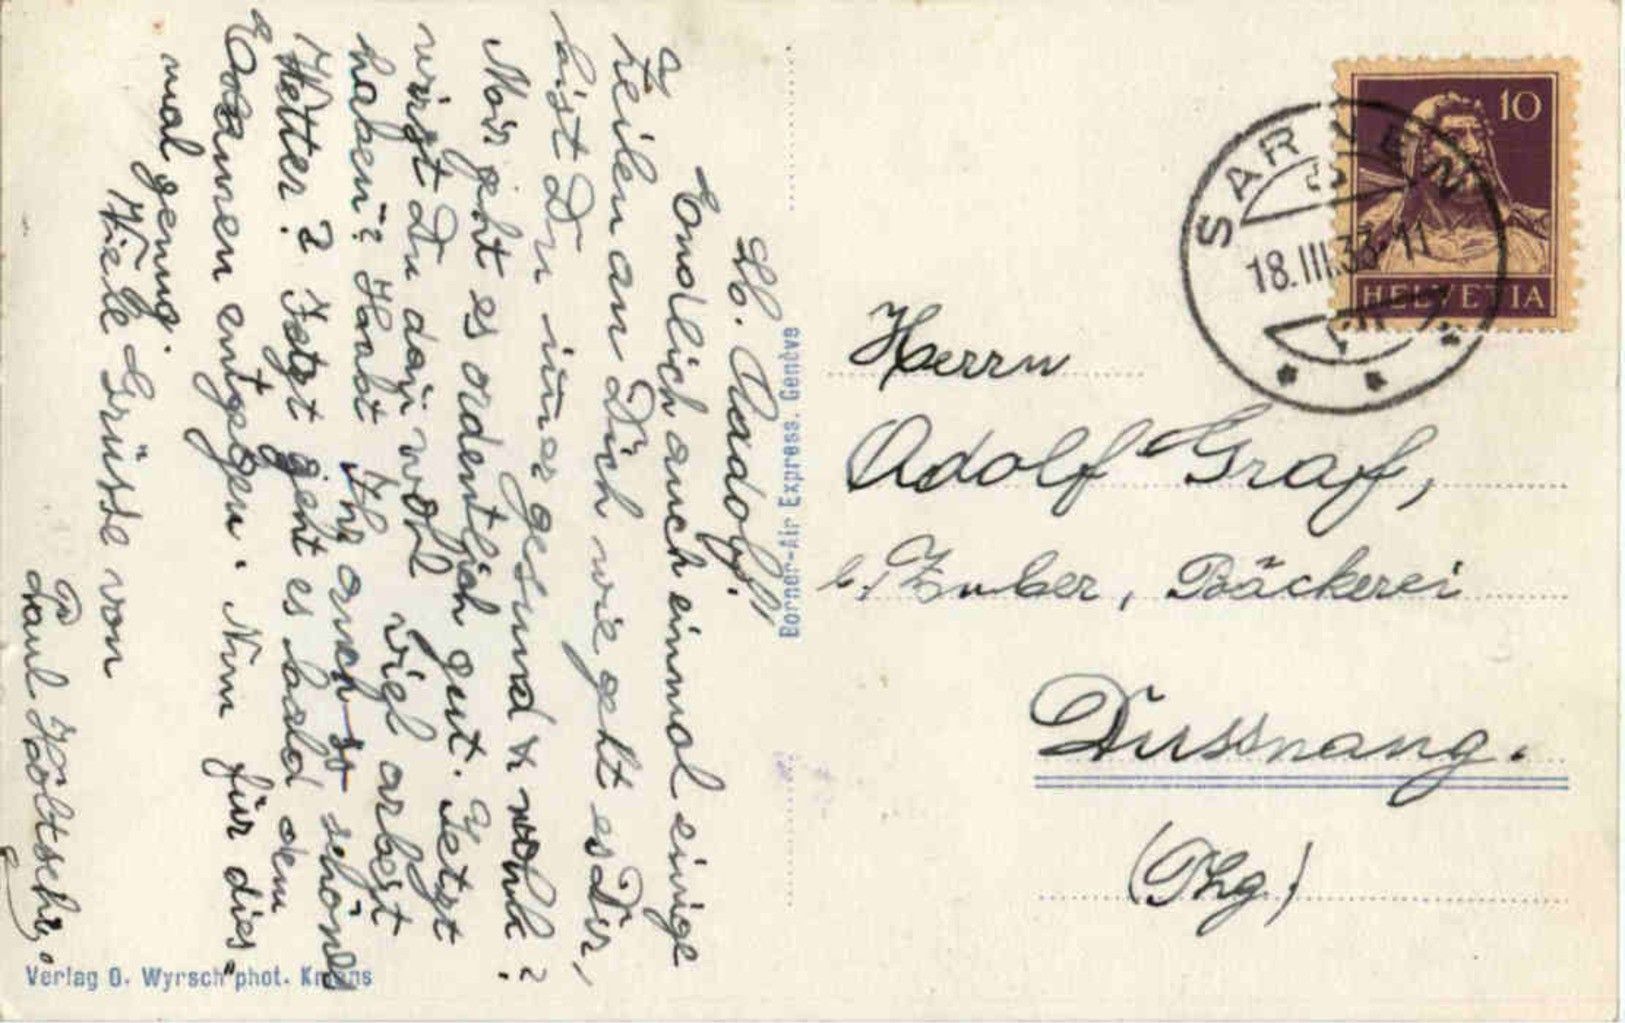 Lb. Aadolf!
Endlich auch einmal einige
Zeilen an Dich wie geht es Dir,
bist Du imer gesund & wohl?
Mir geht es ordentlich gut. Jetzt
wirst Du da wohl viel arbeit
haben? Habt Ihr auch so schönes
Wetter? Jetzt geht es bald dem
Examen entgegen. Nun für dies
mal genug.
Viele Grüsse von
Paul
Verlag O. Wyrsch phot. Kerns
Borner-Air Express. Genève
10
HELVETIA
SARNEN
18.III.33.-11
Herrn
Adolf Graf,
b. Zuber, Bäckerei
Dussnang.
(Thg.)